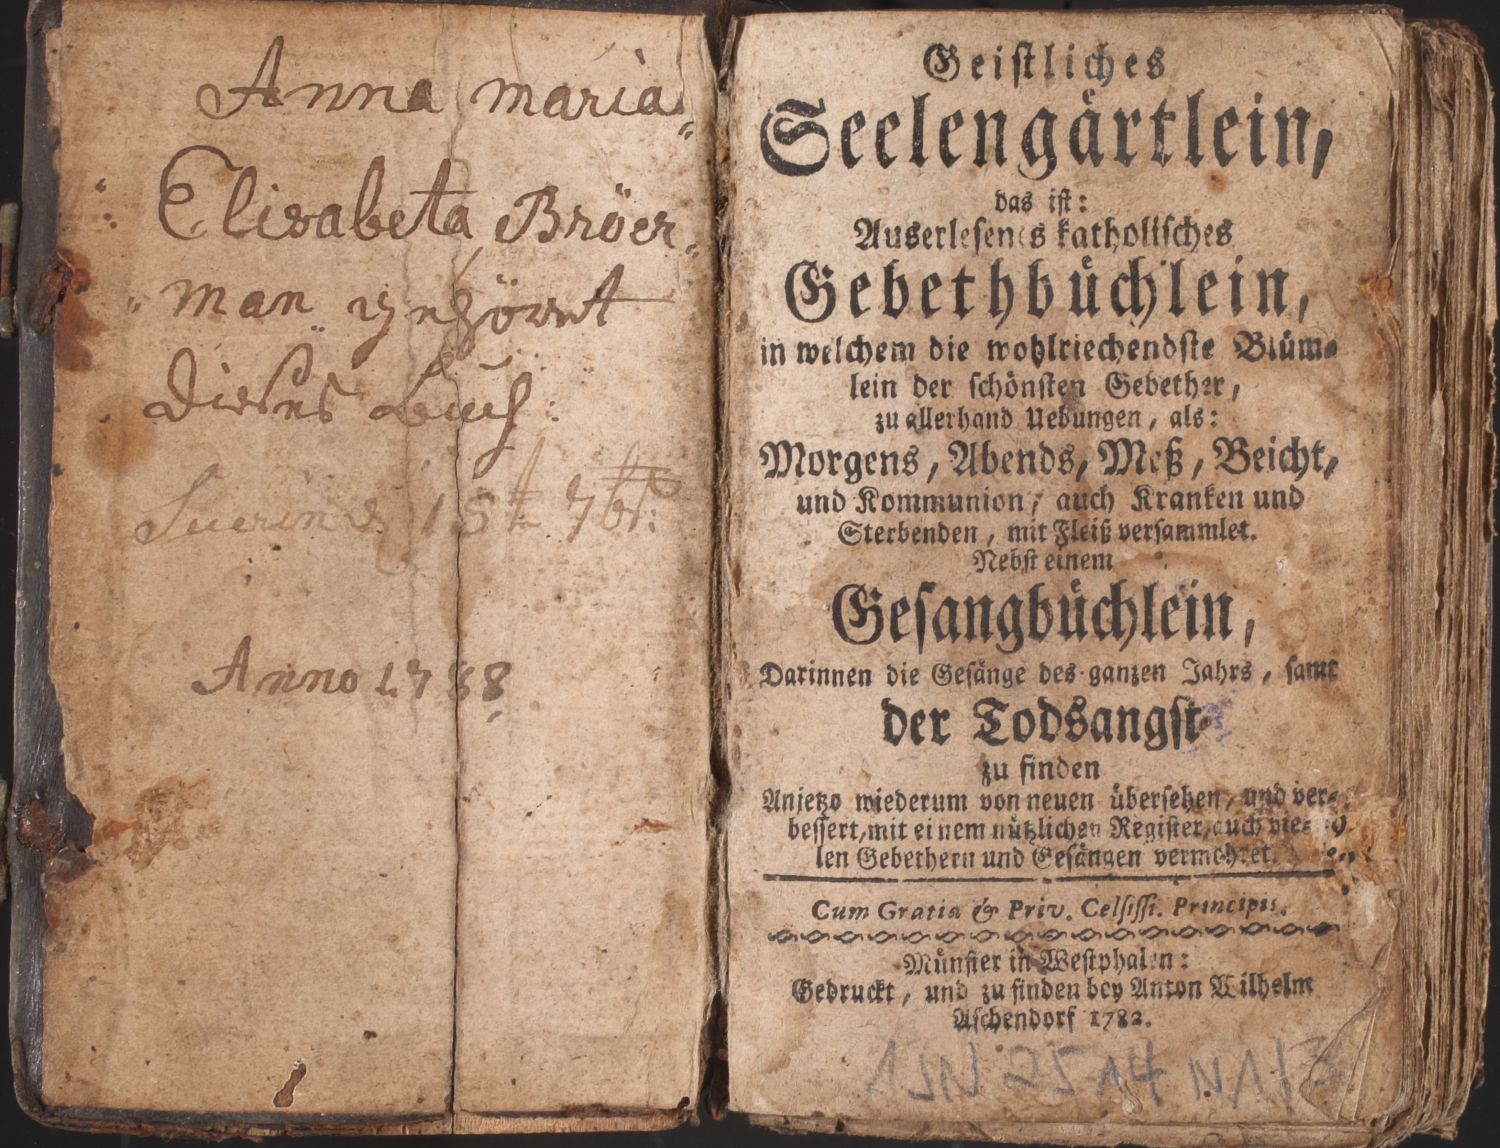 Anna maria
Elisabeta Bröer-
man
Dieses buch:
Suerin d. 15te 7br:
Anno 1788
Geistliches
Seelengärtlein,
das ist:
Auserlesenes katholisches
Gebethbüchlein,
in welchem die wohlriechendste Blüm-
lein der schönsten Gebether,
zu allerhand Uebungen, als:
Morgens, Abends, Meß, Beicht,
und Kommunion, auch Kranken und
Sterbenden, mit Fleiß versammlet.
Nebst einem
Gesangbüchlein,
Darinnen die Gesänge des ganzen Jahrs, samt
der Todsangst
zu finden
Anjetzo wiederum von neuen übersehen, und ver-
bessert, mit einem nützlichen Register, auch vie-
len Gebethern und Gesängen vermehret.
Cum Gratia & Priv. Celsissi. Principis.
Münster in Westphalen:
Gedruckt, und zu finden bey Anton Wilhelm
Aschendorf 1782.